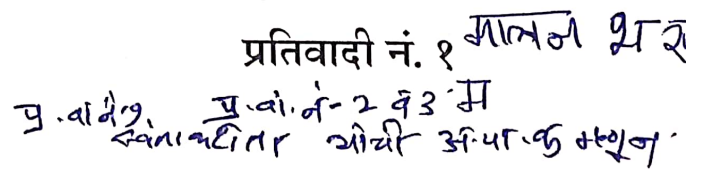 प्रतिवादी नं. १ मालन
प्र.वा.नं.१ प्र.वा.नं-2 व 3 म
स्वतः करीता यांची अ.पा.क म्हणून.